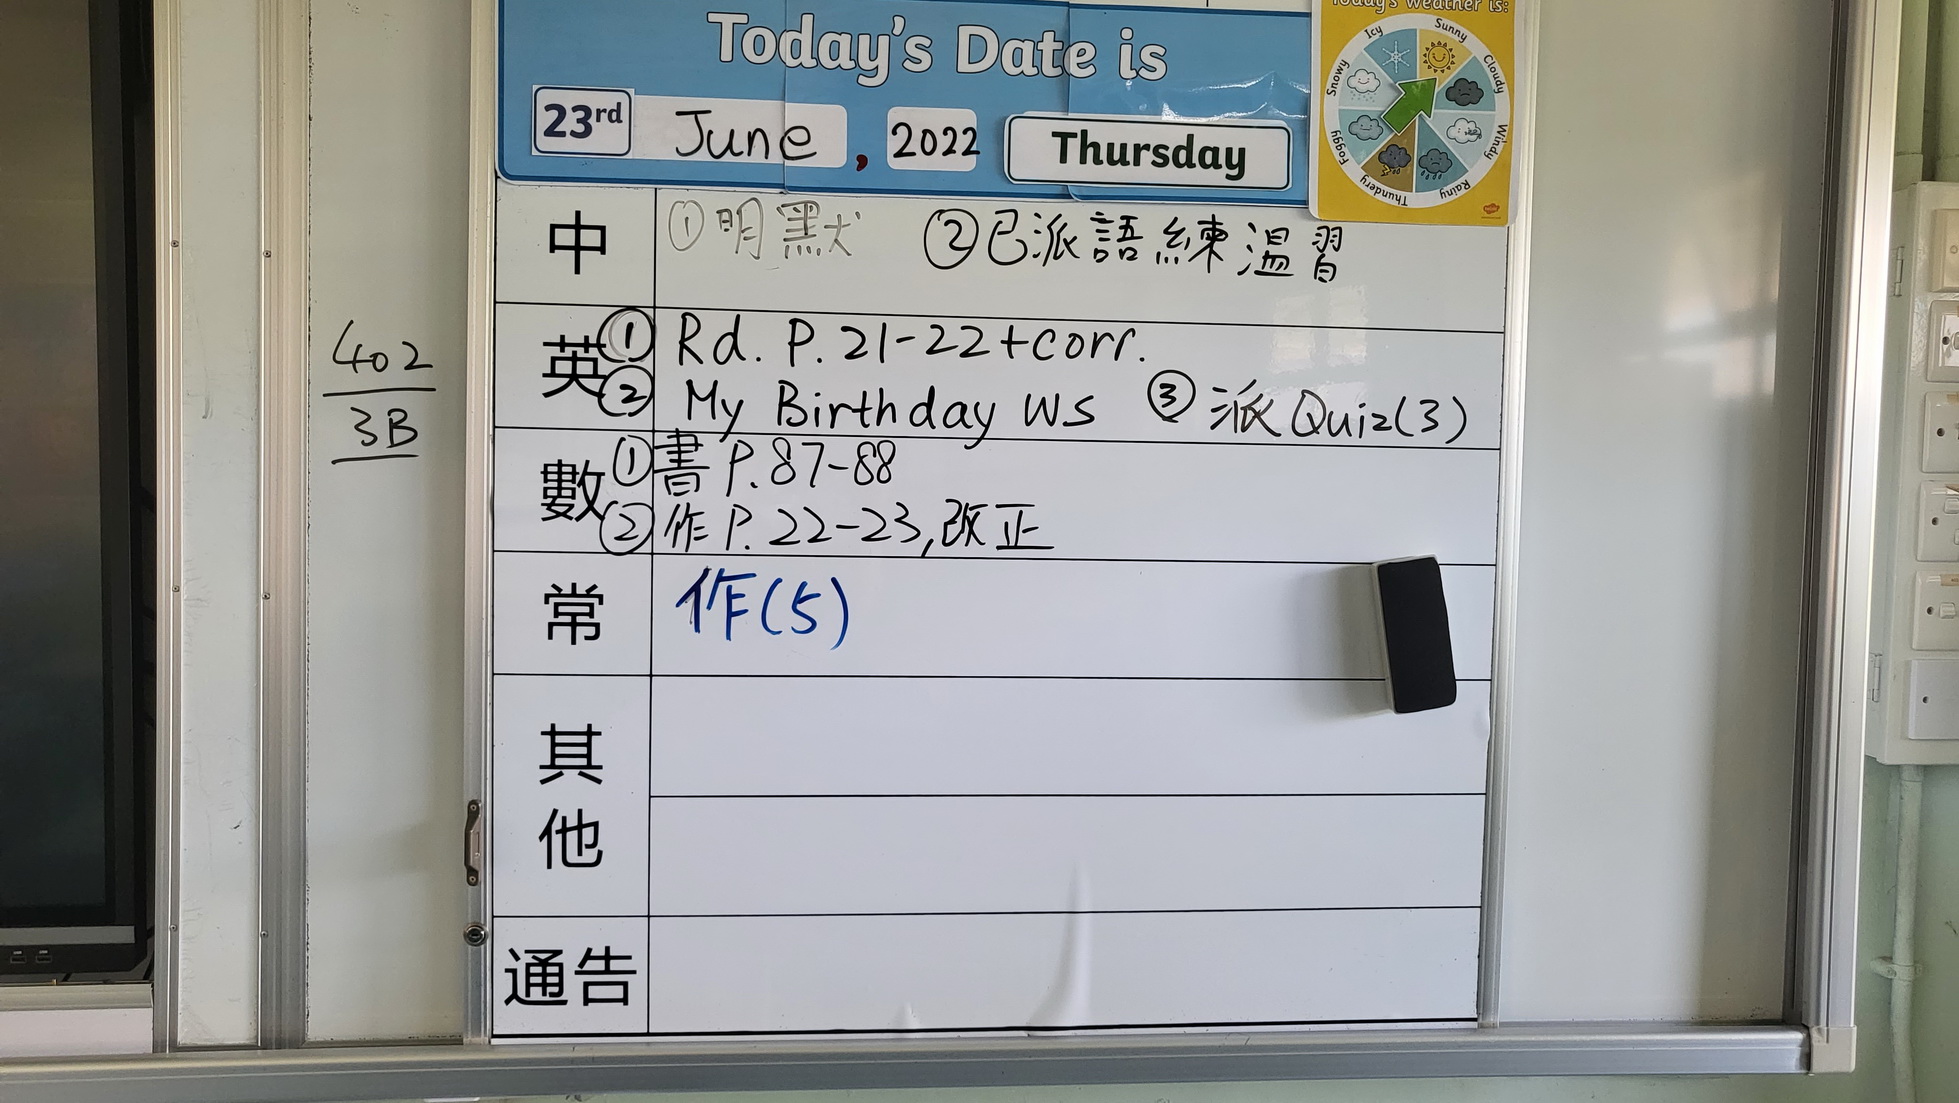 Today's Date is
Today's weather is:
23rd June, 2022 Thursday
Icy
Sunny
Cloudy
Windy
Rainy
Thundery
Foggy
Snowy
中 ①明默 ②已派語練溫習
402
3B
英 ① Rd. P.21-22+corr.
② My Birthday WS ③ 派Quiz(3)
數 ①書P.87-88
②作P.22-23,改正
常 作(5)
其
他
通告